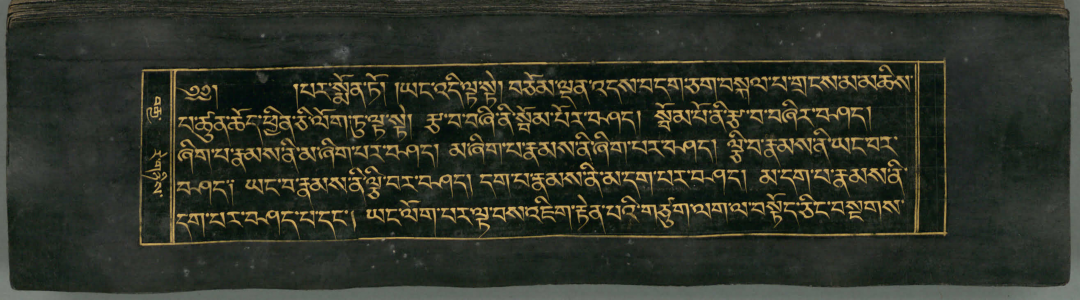 ༄༅། །པར་སྨོན་ཏོ། །ཡང་འདི་ལྟ་སྟེ། བཅོམ་ལྡན་འདས་བདག་ཅག་བསྐལ་པ་གྲངས་མ་མཆིས་
པ་ཚུན་ཆོད་ཕྱིན་ཅི་ལོག་ཏུ་ལྟ་སྟེ། རྩ་བ་བཞི་ནི་སྦོམ་པོར་བཤད། སྦོམ་པོ་ནི་རྩ་བ་བཞིར་བཤད།
ཞིག་པ་རྣམས་ནི་མ་ཞིག་པར་བཤད། མ་ཞིག་པ་རྣམས་ནི་ཞིག་པར་བཤད། ལྕི་བ་རྣམས་ནི་ཡང་བར་
བཤད། ཡང་བ་རྣམས་ནི་ལྕི་བར་བཤད། དག་པ་རྣམས་ནི་མ་དག་པར་བཤད། མ་དག་པ་རྣམས་ནི་
དག་པར་བཤད་པ་དང་། ཡང་ལོག་པར་ལྟ་བས་འཇིག་རྟེན་པའི་གཙུག་ལག་ལ་བསྟོད་ཅིང་བསྔགས་